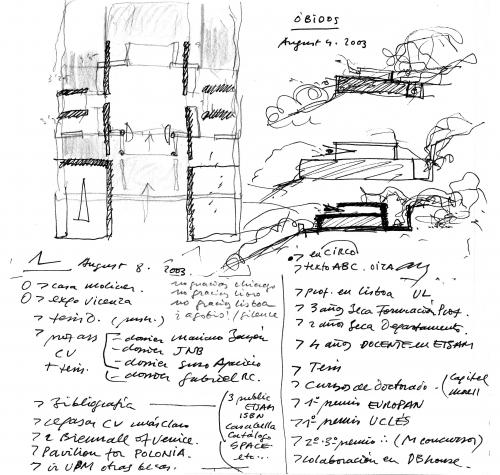 ÓBIDOS
August 4. 2003
August 8. 2003.
o> casa molina.
o> expo Vicenza
no gracias chicago
no gracias libro
no gracias lisboa
silence
> tesis D.
> prof ass
CV
+ tesis.
- dossier mariano
- dossier JNB
- dossier suso Aparicio
- dossier Gabriel RC.
> Bibliografía
3 public
ETSAM
ISBN
Casabella
Catálogo
SPACE
etc...
> repasar CV más claro
> 2 Biennall of Venice.
> Pavilion for POLONIA.
> ir UPM otras becas.
> en CIRCO
> texto ABC. OIZA
> prof. en lisboa UL
> 3 años Beca Formación Prof.
> 2 años Beca Departamento.
> 4 años DOCENTE en ETSAM
> Tesis
> Cursos de doctorado.
> 1º premio EUROPAN
> 1º premio UCLÉS
> 2º 3º premio : (M concursos)
> colaboración en DB house.